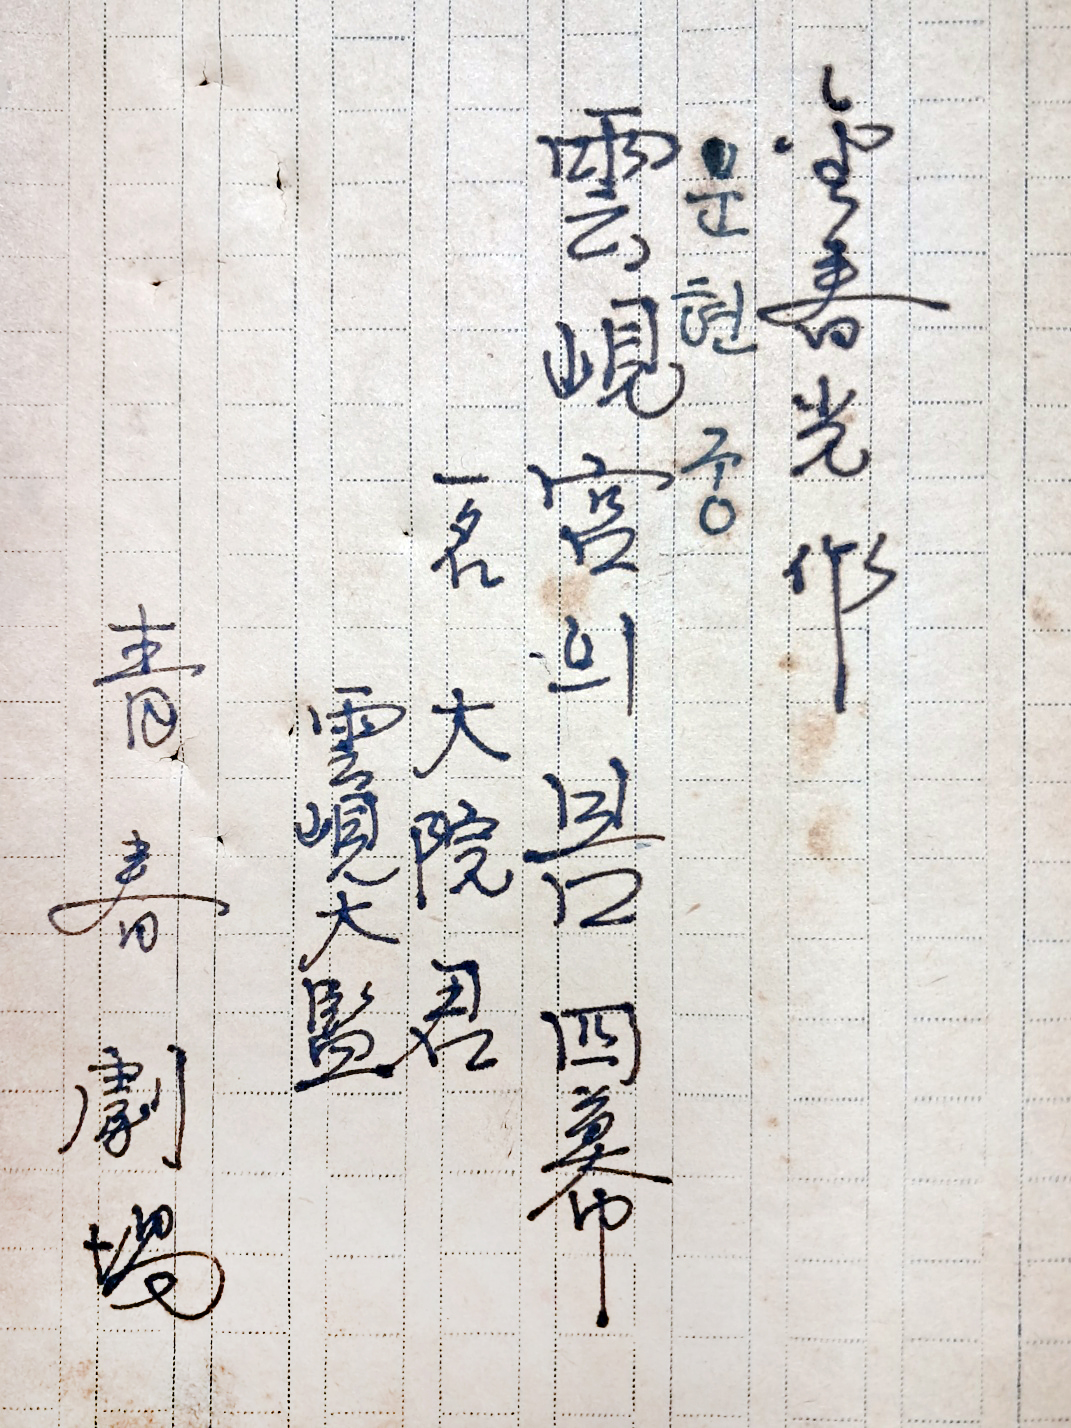 金春光 作
운현궁
雲峴宮의 봄 四幕
一名 大院君
雲峴大監
靑春劇場